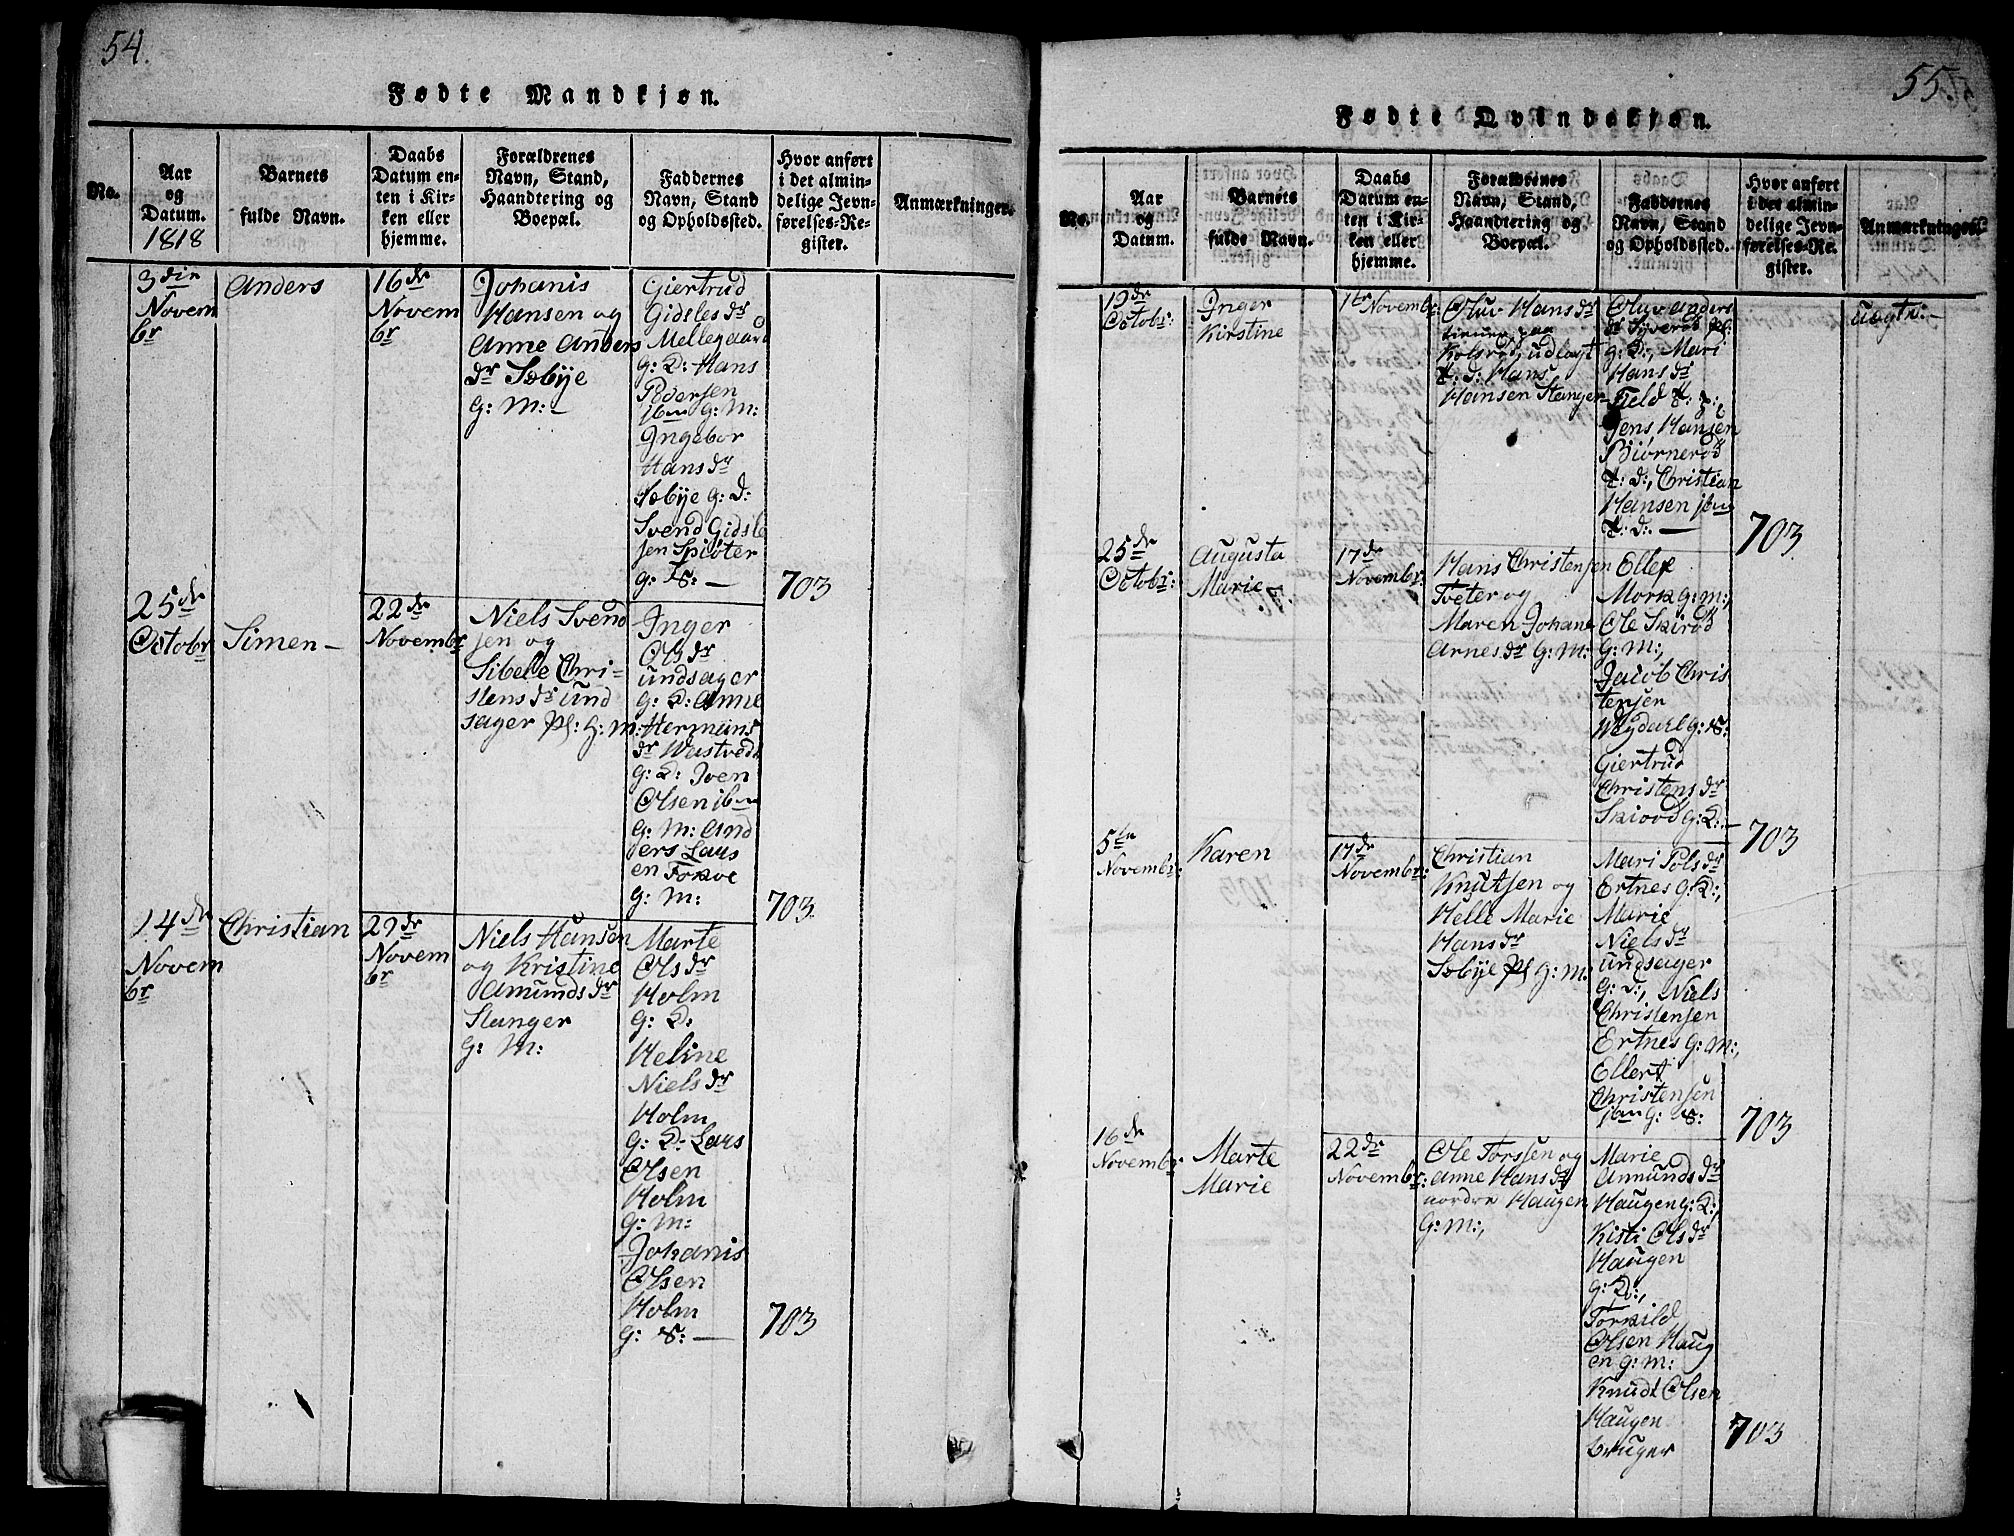 54.
Fødte Mandkjøn.
No.
Aar
og
Datum.
1818
Barnets
fulde Navn.
Daabs
Datum en-
ten i Kir-
ken eller
hjemme.
Forældrenes
Navn, Stand,
Haandtering og
Boepæl.
Faddernes
Navn, Stand
og Opholdssted.
Hvor anført
i det almin-
delige Jevn-
førelses-Re-
gister.
Anmærkninger.
3 die
Novem
br
Anders
16 de
Novem
br
Johanis
Hansen og
Anne Anders
dr Sæbye
G: M: -
Giertrud
Gidsles dr
Mellegaard
g: D: Hans
Pedersen
ibm G: M:
Ingebor
Hans dr
Sæbye g: D:
Svend Gidsle
sen Spiøter
g: S: —
703
25 de
Octobr
Simen -
22 de
Novembr
Niels Svend
sen og
Sibelle Chri-
stens dr und
sager Pl: G: M:
Inger
Ols dr
undsager
g: D: Anne
Hermans
dr Wastvedt
g: D: Iven
Olsen ibm
G: M: And
ers Lars
en Tokve
G: M:
703
14 de
Novem
br
Christian
29 de
Novem
br
Niels Hansen
og Kristine
Amunds dr
Slanger
G: M:
Marte
Ols dr
Holm
G: D:
Heline
Niels dr
Holm
G: D: Lars
Olsen
Holm
G: M:
Johanis
Olsen
Holm
G: S: —
703
55.
Fødte Qvindekjøn.
No.
Aar
og
Datum.
Barnets
fulde Navn.
Daabs
Datum en-
ten i Kir-
ken eller
hjemme.
Forældrenes
Navn, Stand,
Haandtering og
Boepæl.
Faddernes
Navn, Stand
og Opholdssted.
Hvor anført
i det almin-
delige Jevn-
førelses-Re-
gister.
Anmærkninger.
Octobr:
Inger
Kirstine
1te Novembr:
Oluv Hans dr
paa
Kolsrød, udlagt
d: Hans
Hansen Slanger
Oluv Anders
dr
g: D:, Mari
Hans dr
Field
Jens Hansen
Biørnerød
d:, Christian
Hansen ibm
d: —
703
uægte: -
25 de
Octobr:
Augusta
Marie -
17 de
Novembr:
Hans Christensen
Tveter og
Maren Johane
Arnes dr G: M:
Eller
Mork g: m:,
Ole Skirød
G: M:,
Jacob Chris
tensen
Weydahl g: S:
Giertrud
Christens dr
Skirød g: D: —
703
5 te
Novembr:
Karen
17 de
Novembr:
Christian
Knutsen og
Helle Marie
Hans dr
Sæbye Pl G: M:
Mari Pols dr
Ertnes G: D:,
Marie
Niels dr
undsager
G: D:, Niels
Christensen
Ertnes G: M:,
Ellert
Christensen
ibm g: S:
703
16 de
Novembr
Marte
Marie
22 de
Novembr:
Ole Torssen og
Anne Hans dr
nordre Haugen
G: M:,
Marie
Amunds dr
Haugen g: D:,
Kisti Ols dr
Haugen
g: D:,
Torkild
Olsen Haug
en g: M:
Knudt Olsen
Haugen
bruger
703